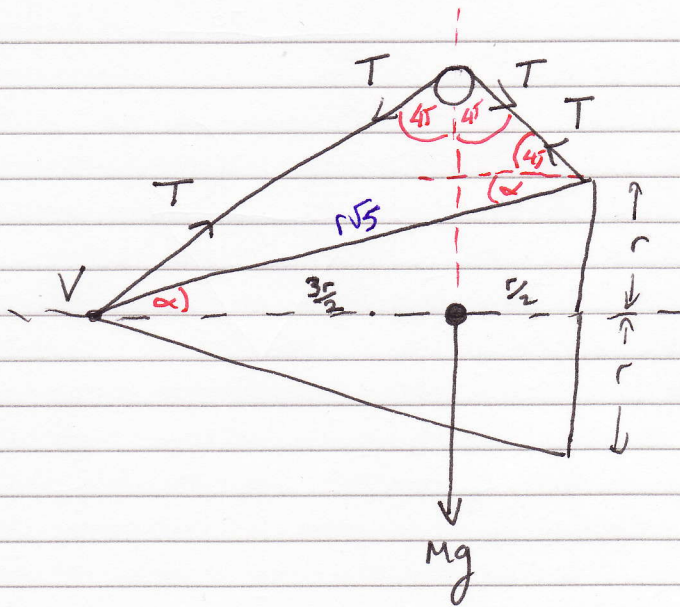 T
T
45
45
T
45
α
T
r√5
r
V
α
3r/2
r/2
r
Mg